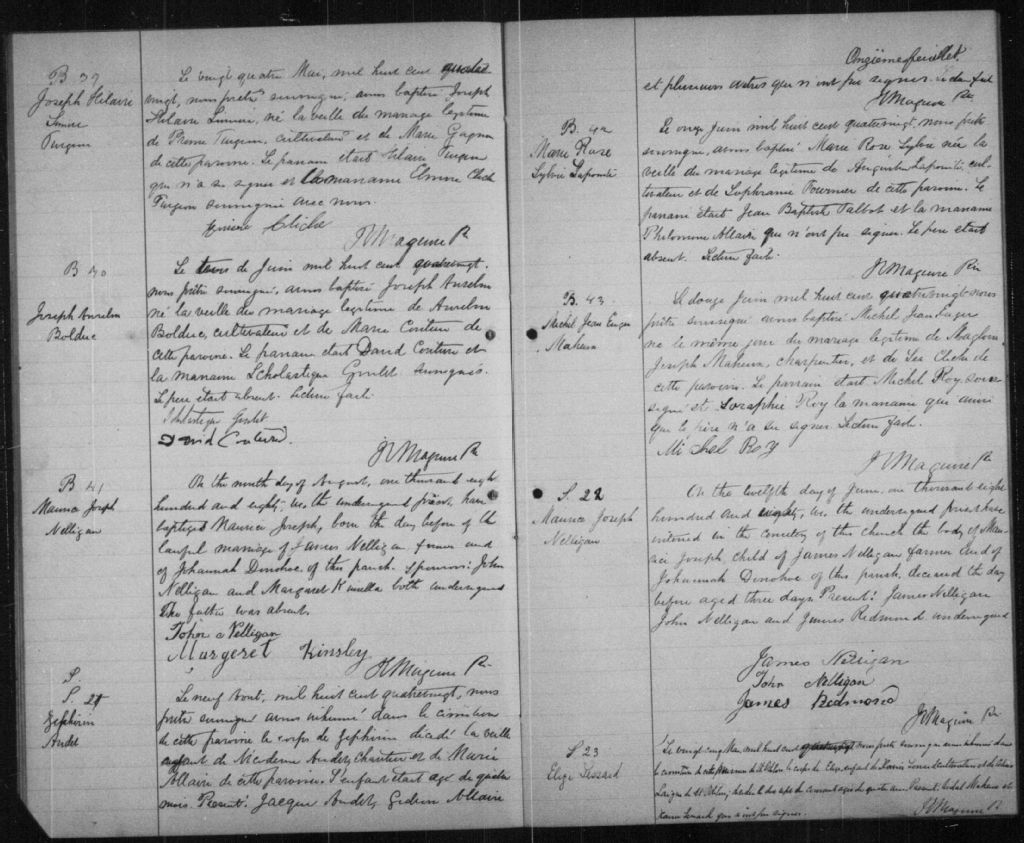 B 39
Joseph Hilaire
Simeon
Turgeon
Le vingt quatre Mai, mil huit cent quatre
vingt, nous prêtre soussigné, avons baptisé Joseph
Hilaire né la veille du mariage légitime
de Pierre Turgeon, cultivateur et de Marie Gagnon
de cette paroisse. Le parrain était Hilaire Turgeon
qui n'a su signer et la marraine Elmire Cliche
Turgeon soussignée avec nous.
Cliche
JV Maguire Ptr
B 40
Joseph Anselm
Bolduc
Le trois de Juin mil huit cent quatrevingt.
nous prêtre soussigné, avons baptisé Joseph Anselm
né la veille du mariage légitime de Anselm
Bolduc, cultivateur et de Marie Couture de
cette paroisse. Le parrain était David Couture et
la marraine Scholastique Goulet soussignés.
Le père était absent. Lecture faite
Scholastique Goulet
David Couture.
JV Maguire Ptr
B 41
Maurice Joseph
Nelligan
On the ninth day of August, one thousand eight
hundred and eighty, we the undersigned priest, have
baptized Maurice Joseph, born the day before of the
lawful marriage of James Nelligan farmer and
of Johannah Donohoe of this parish. Sponsors: John
Nelligan and Margaret Kinsella both undersigned
The father was absent.
John Nelligan
Margeret Kinsley
JV Maguire Ptr
S.
S. 21
Zephirin
Audet
Le neuf Aout, mil huit cent quatrevingt, nous
prêtre soussigné avons inhumé dans le cimetière
de cette paroisse le corps de Zephirin décédé la veille
enfant de Nicodème Audet, Charretier et de Marie
Allaire de cette paroisse. L'enfant était agé de quatre
mois. Present: Jacques Audet, Gédéon Allaire
Onzième feuillet.
et plusieurs autres qui n'ont pu signer. de fait
JV Maguire Ptr
B. 42
Marie Rose
Sylvie Lapointe
Le onze Juin mil huit cent quatrevingt, nous prêtre
soussigné, avons baptisé Marie Rose Sylvie née la
veille du mariage légitime de Augustin Lapointe cul-
tivateur et de Sophranie Fournier de cette paroisse. Le
parrain était Jean Baptiste Talbot et la marraine
Philomène Allaire qui n'ont pu signer. Le père était
absent. Lecture faite.
JV Maguire Ptr
B. 43
Michel Jean Eugen
Maheux
Le douze Juin mil huit cent quatrevingt nous
prêtre soussigné avons baptisé Michel Jean Eugen
né le même jour du mariage légitime de
Joseph Maheux, charpentier, et de Cliche de
cette paroisse. Le parrain était Michel Roy sous-
signé et Seraphie Roy la marraine qui ainsi
que le père n'a su signer Lecture faite.
Michel Roy
JV Maguire Ptr
S. 22
Maurice Joseph
Nelligan
On the twelfth day of June, one thousand eight
hundred and eighty, we the undersigned priest have
interred in the cemetery of this church the body of Mau-
rice Joseph child of James Nelligan farmer and of
Johannah Donohoe of this parish, deceased the day
before aged three days. Present: James Nelligan
John Nelligan and James Redmond undersigned
James Nelligan
John Nelligan
James Redmond
JV Maguire Ptr
S 23
Elize Lessard
Le vingt cinq Mai mil huit cent quatrevingt nous prêtre soussigné avons inhumé dans
le cimetière de cette paroisse le corps de Elize, enfant de cultivateur et de
Present:
qui n'ont pu signer.
JV Maguire Ptr